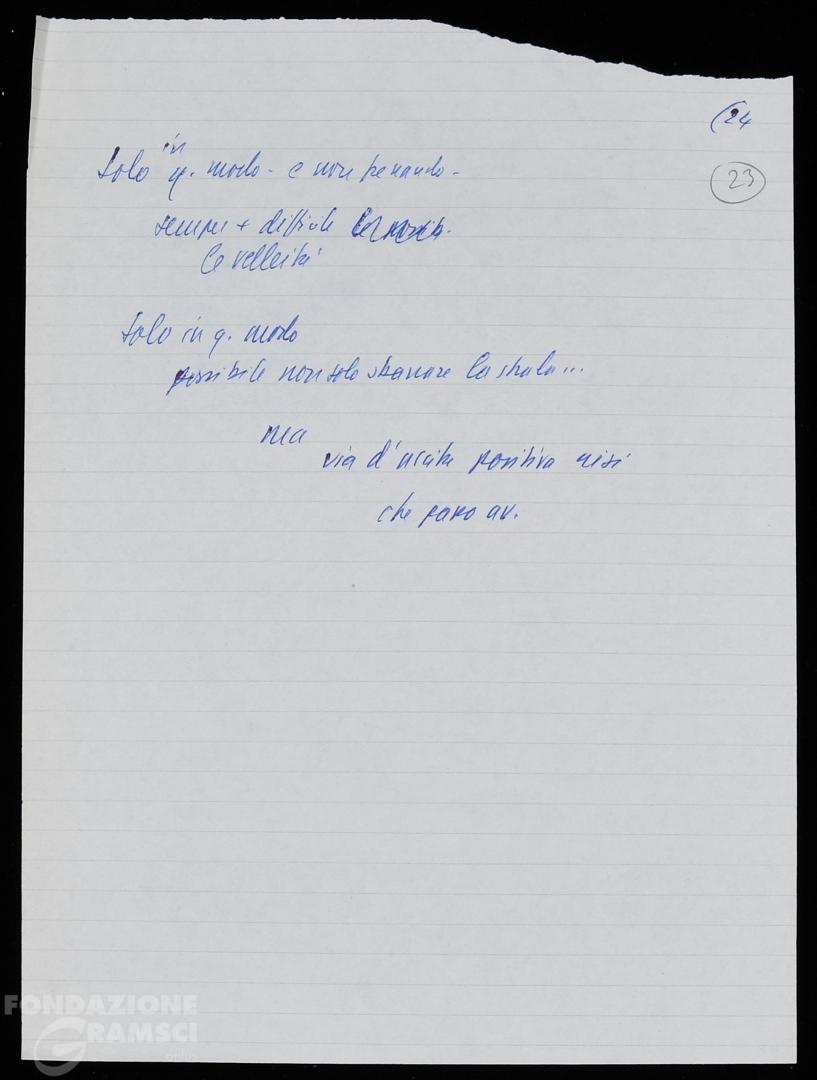 (24
23
in
Solo q. modo - e non pensando -
sempre + difficile
le velleità
Solo in q. modo
possibile non solo sbarrare la strada...
ma
via d'uscita positiva crisi
che passo av.
FONDAZIONE
GRAMSCI
onlus